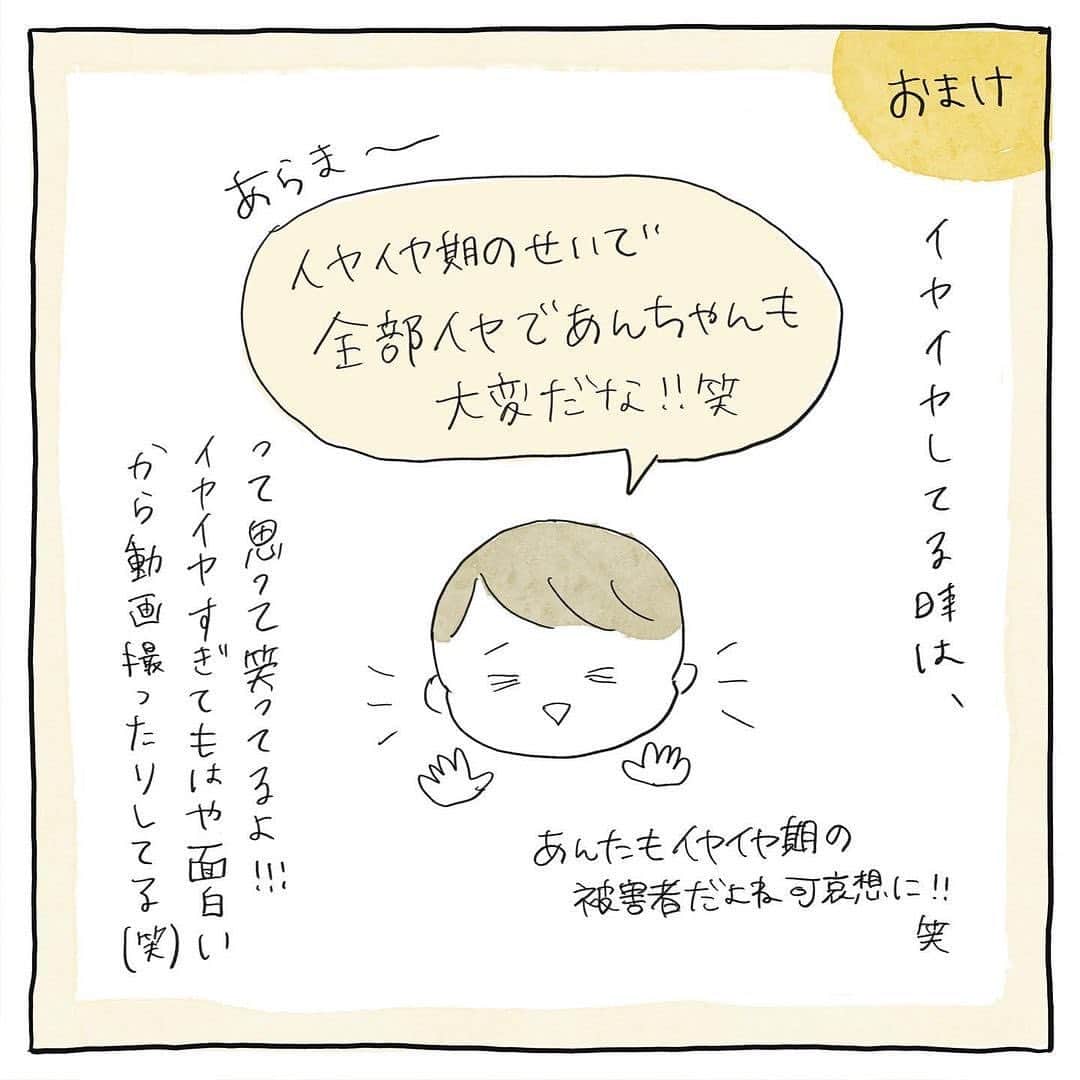 おまけ
イヤイヤしてる時は、
あらま〜
イヤイヤ期のせいで
全部イヤであんちゃんも
大変だな!!笑
って思って笑ってるよ!!!
イヤイヤすぎてもはや面白い
から動画撮ったりしてる(笑)
あんたもイヤイヤ期の
被害者だよね可哀想に!!
笑